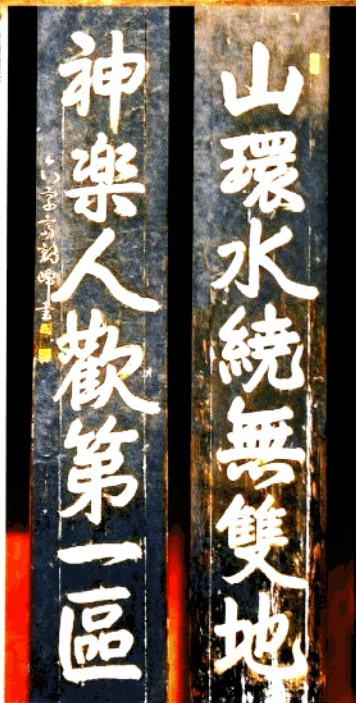 山環水繞無雙地
神楽人歡第一區